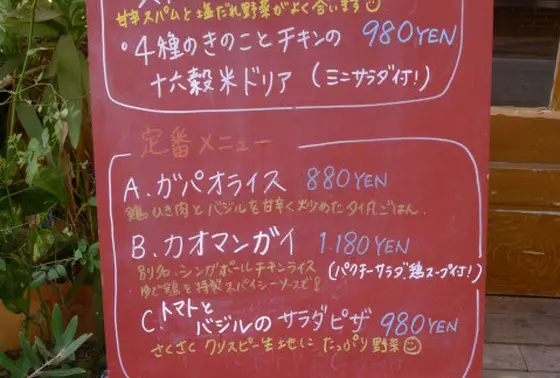 甘辛スパムと塩だれ野菜がよく合います
・4種のきのことチキンの 980YEN
十六穀米ドリア (ミニサラダ付!)
定番メニュー
A. ガパオライス 880YEN
鶏ひき肉とバジルを甘辛く炒めたタイ風ごはん.
B. カオマンガイ 1.180YEN
別名.シンガポールチキンライス
(パクチーサラダ.鶏スープ付!)
ゆで鶏を特製スパイシーソースで!
C. トマトと
バジルのサラダピザ 980YEN
さくさくクリスピー生地にたっぷり野菜